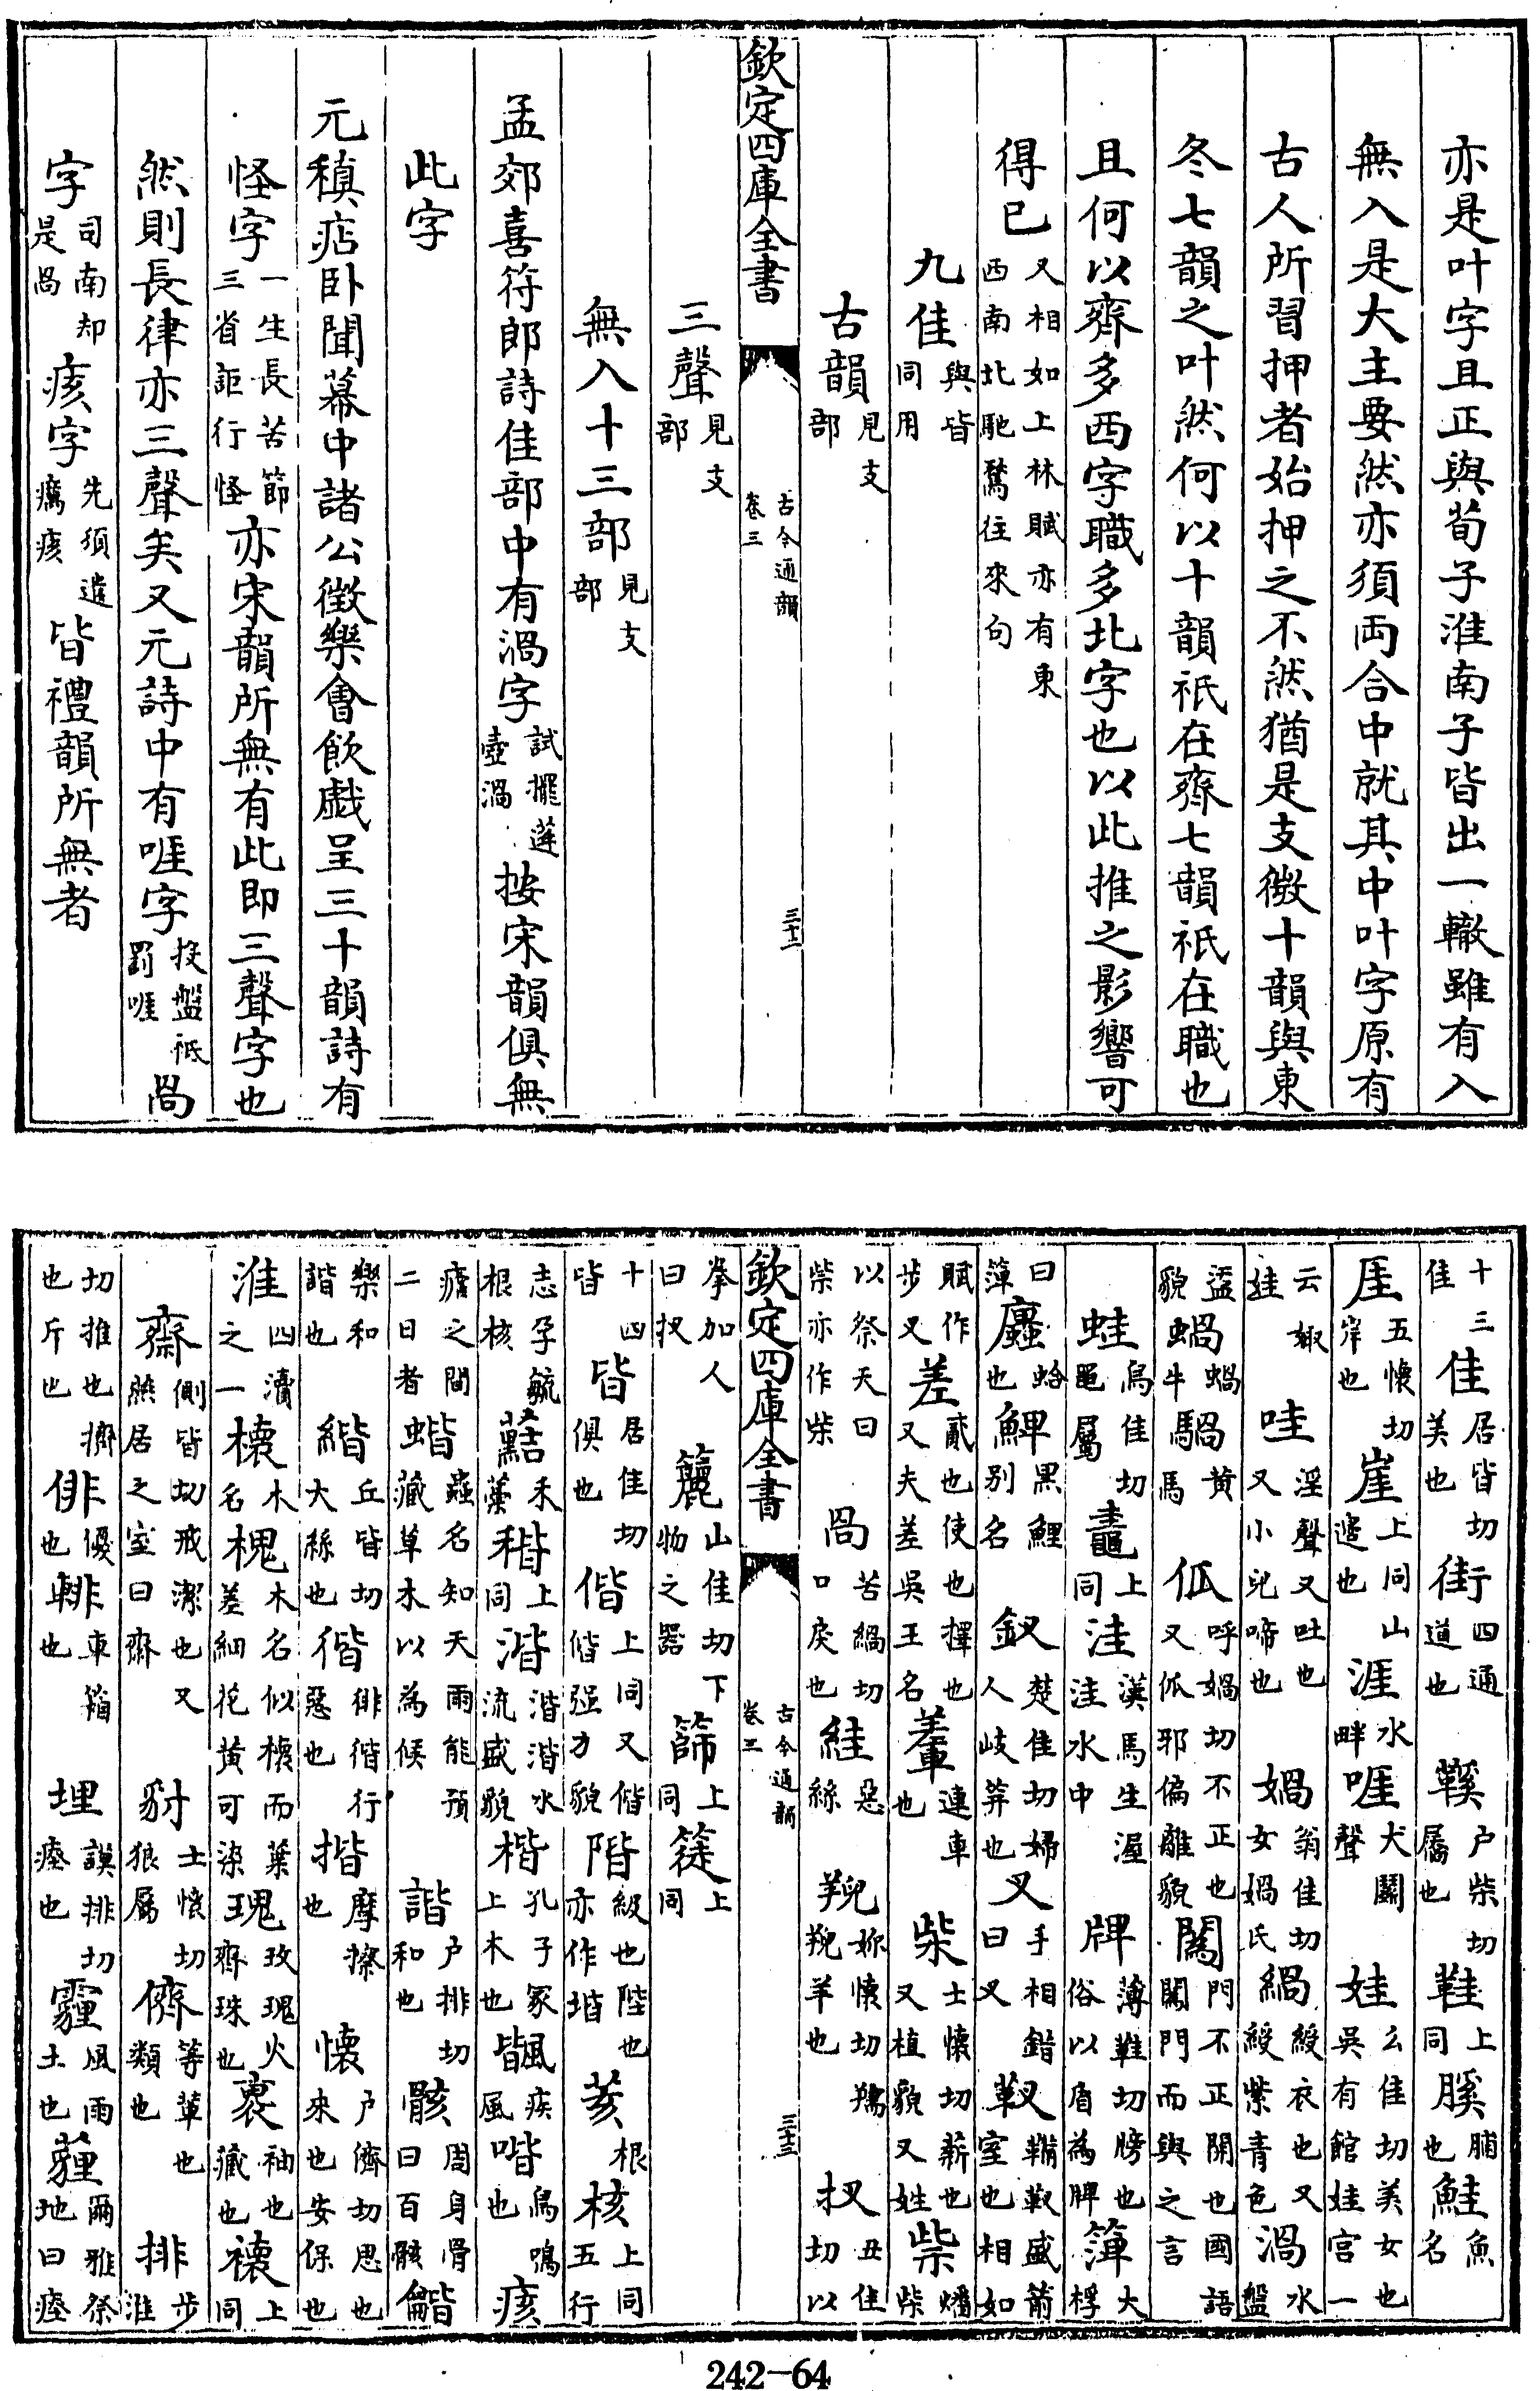 亦是叶字且正與荀子淮南子皆出一轍雖有入
無入是大主要然亦須兩合中就其中叶字原有
古人所習押者始押之不然猶是支微十韻與東
冬七韻之叶然何以十韻祇在齊七韻祇在職也
且何以齊多西字職多北字也以此推之影響可
得已又相如上林賦亦有東西南北馳騖往來句
九佳與皆同用
古韻見支部
欽定四庫全書
古今通韻
卷三
三十二
三聲見支部
無入十三部見支部
孟郊喜符郎詩佳部中有渦字試擺蓮壺渦按宋韻俱無
此字
元稹痁卧聞幕中諸公徵樂會飲戲呈三十韻詩有
怪字一生長苦節三省詎行怪亦宋韻所無有此即三聲字也
然則長律亦三聲矣又元詩中有啀字投盤祇罰啀咼
字司南却是咼痎字先須遣癘痎皆禮韻所無者
十三佳佳居皆切美也街四通道也鞵户柴切屬也鞋上同膎脯也鮭魚名
厓五懷切岸也崖上同山邊也涯水畔啀犬鬭聲娃么佳切美女也吳有館娃宫一
云娵娃哇淫聲又吐也又小兒啼也媧翁佳切女媧氏緺綬衣也又綬紫青色渦水盤
盓貌蝸蝸牛騧黄馬㧓呼媧切不正也又㧓邪偏離貌闖門不正開也國語闖門而與之言
蛙烏佳切黽屬鼃上同洼漢馬生渥洼水中牌薄難切牓也俗以眉為脾簰大桴
曰簰蠯蛤也鯡黑鯉别名釵楚佳切婦人岐笄也叉手相錯曰叉靫鞴靫盛箭室也相如
賦作步叉差貳也使也擇也又夫差吳王名輂連車也柴士懷切薪也又植貌又姓祡燔柴
以祭天曰祡亦作柴咼苦緺切口戾也絓惡絲䍲妳懷切羺䍲羊也扠丑佳切以
拳加人曰扠簏山佳切下物之器篩上同簁上同
欽定四庫全書
古今通韻
卷三
三十三
十四皆皆居佳切俱也偕上同又偕偕强力貌階級也陛也亦作堦荄根核上同五行
志孕毓根核藍禾藁稭上同湝湝湝水流盛貌楷孔子冢上木也䫿疾風喈鳥鳴也痎
瘧之間二日者蝔蟲名知天雨能預藏草木以為候諧户排切和也骸周身骨曰百骸龤
樂和龤也緒丘皆切大絲也㣟徘㣟行惡也揩摩擦也懷户儕切思也來也安保也
淮四瀆之一櫰木名槐木名似櫰而葉差細花黄可染瑰玫瑰火齊珠也褱袖也藏也褢上同
齋側皆切戒潔也又燕居之室曰齋豺士懷切狼屬儕等輩也類也排步淮
切推也擠也斥也俳優也輫車箱也埋謨排切瘞也霾風雨土也薶爾雅祭地曰瘞
242-64